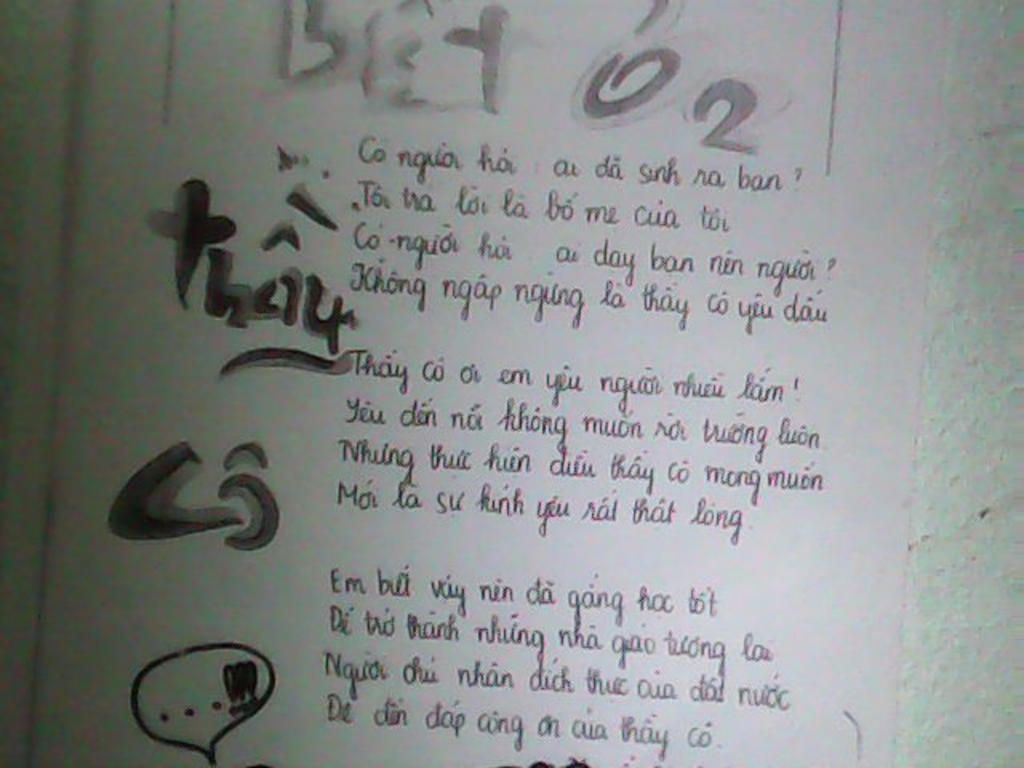 BẾT Ở 2
Thầy
Cô
...!!!
Có người hỏi: ai đã sinh ra bạn?
Tôi trả lời là bố mẹ của tôi
Có người hỏi: ai dạy bạn nên người?
Không ngập ngừng là thầy cô yêu dấu
Thầy cô ơi em yêu người nhiều lắm!
Yêu đến nỗi không muốn rời trường luôn
Nhưng thực hiện điều thầy cô mong muốn
Mới là sự kính yêu rất thật lòng.
Em biết vậy nên đã gắng học tốt
Để trở thành những nhà giáo tương lai
Người chủ nhân đích thực của đất nước
Để đền đáp công ơn của thầy cô.